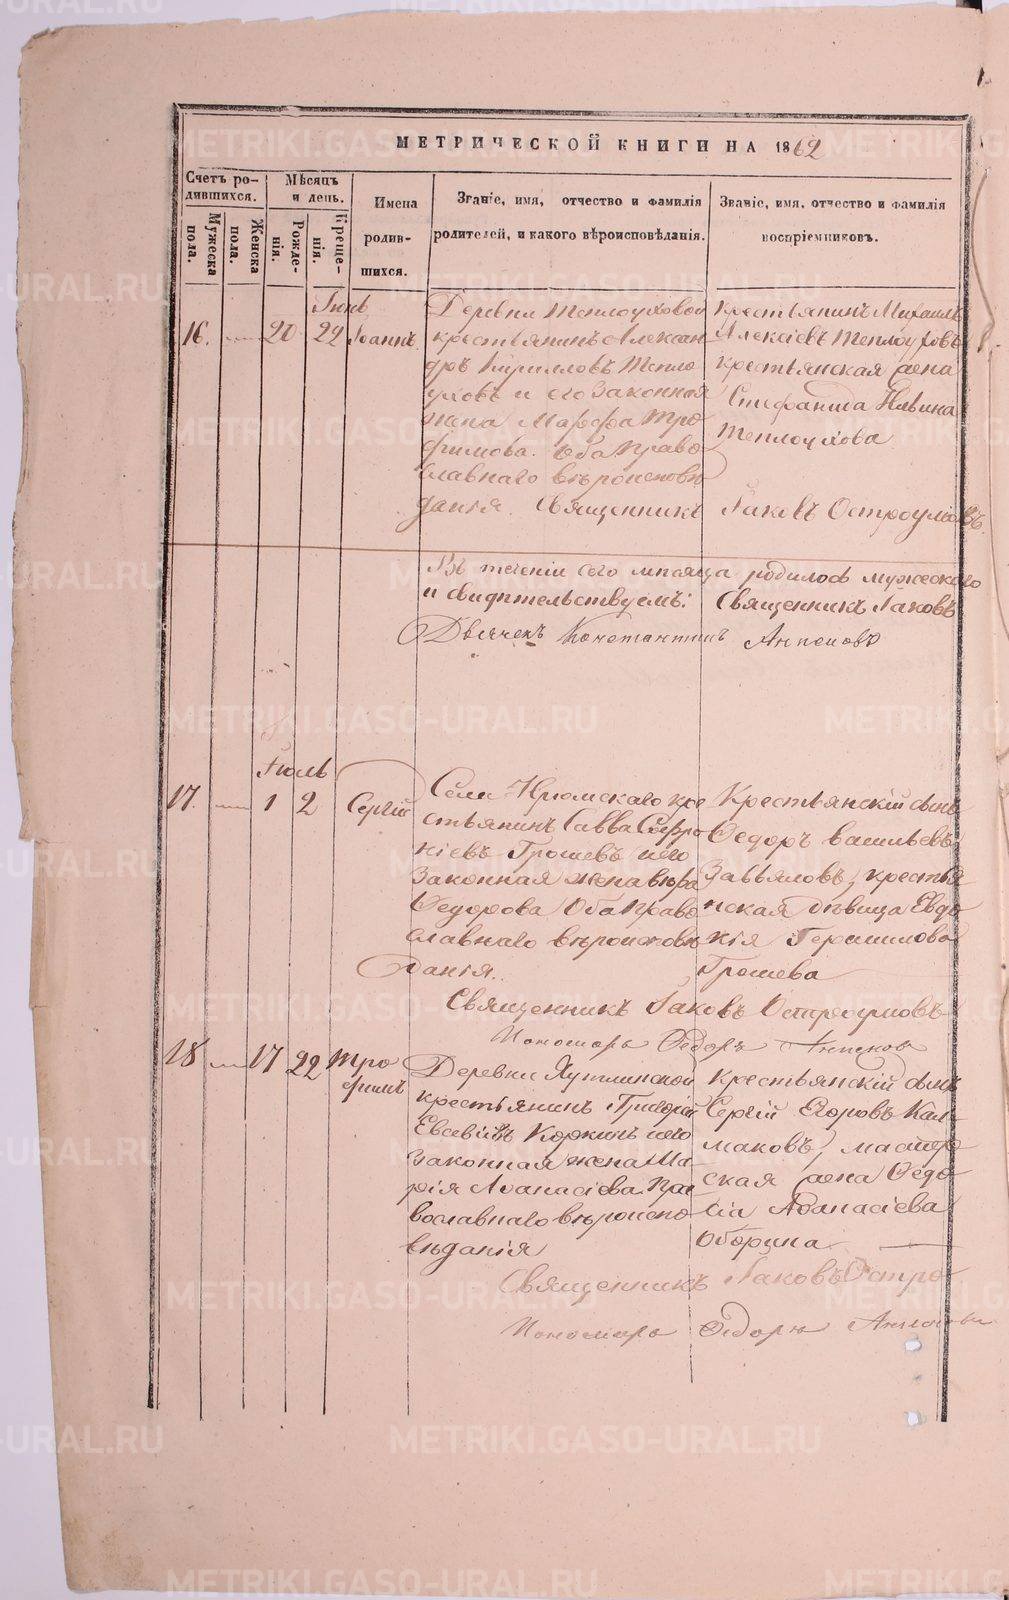 МЕТРИЧЕСКОЙ КНИГИ НА 1862
Счетъ ро-
дившихся.
Мѣсяцъ
и день.
Мужеска
пола.
Женска
пола.
Рожде-
нія.
Креще-
нія.
Имена
родив-
шихся.
Званіе, имя, отчество и фамилія
родителей, и какого вѣроисповѣданія.
Званіе, имя, отчество и фамилія
воспріемниковъ.
Іюнь
16. 20 22 Іоаннъ
Деревни Теплоуховой
крестьянинъ Алексан
дръ Кирилловъ Тепло
уховъ и его законная
жена Марѳа Тро
фимова. Оба право
славнаго вѣроисповѣ
данія. Священникъ Іаковъ Остроумовъ
Крестьянинъ Михаилъ
Алексіевъ Теплоуховъ
крестьянская жена
Стефанида Ильина
Теплоухова
Въ теченіи сего мѣсяца родилось мужескаго
и свидѣтельствуемъ: Священникъ Іаковъ
Дьячекъ Константинъ
Іюль
17. 1 2 Сергій
Села крестьянинъ Савва Софро
ніевъ Грошевъ и его
законная жена Вѣра
Ѳедорова Оба право
славнаго вѣроисповѣ
данія.
Крестьянскій сынъ
Ѳедоръ Васильевъ
Завьяловъ, крестья
нская дѣвица Евдо
кія Герасимова
Грошева
Священникъ Іаковъ Остроумовъ
Пономарь Ѳедоръ
18 17 22 Тро
фимъ
Деревни
крестьянинъ Григорій
Евсевіевъ и его
законная жена Ма
рія Аѳанасіева Пра
вославнаго вѣроиспо
вѣданія
Крестьянскій сынъ
Сергій Егоровъ Кал
маковъ, мастер
ская жена Ѳедо
сіа Аѳанасіева
Оборина
Священникъ Іаковъ Остро
Пономарь Ѳедоръ
METRIKI.GASO-URAL.RU